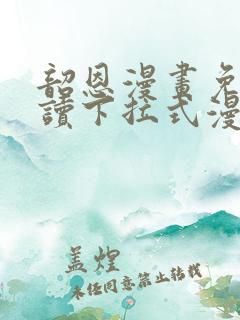 韶恩漫畫免
讀下拉式漫
盖煌
未经同意禁止转载